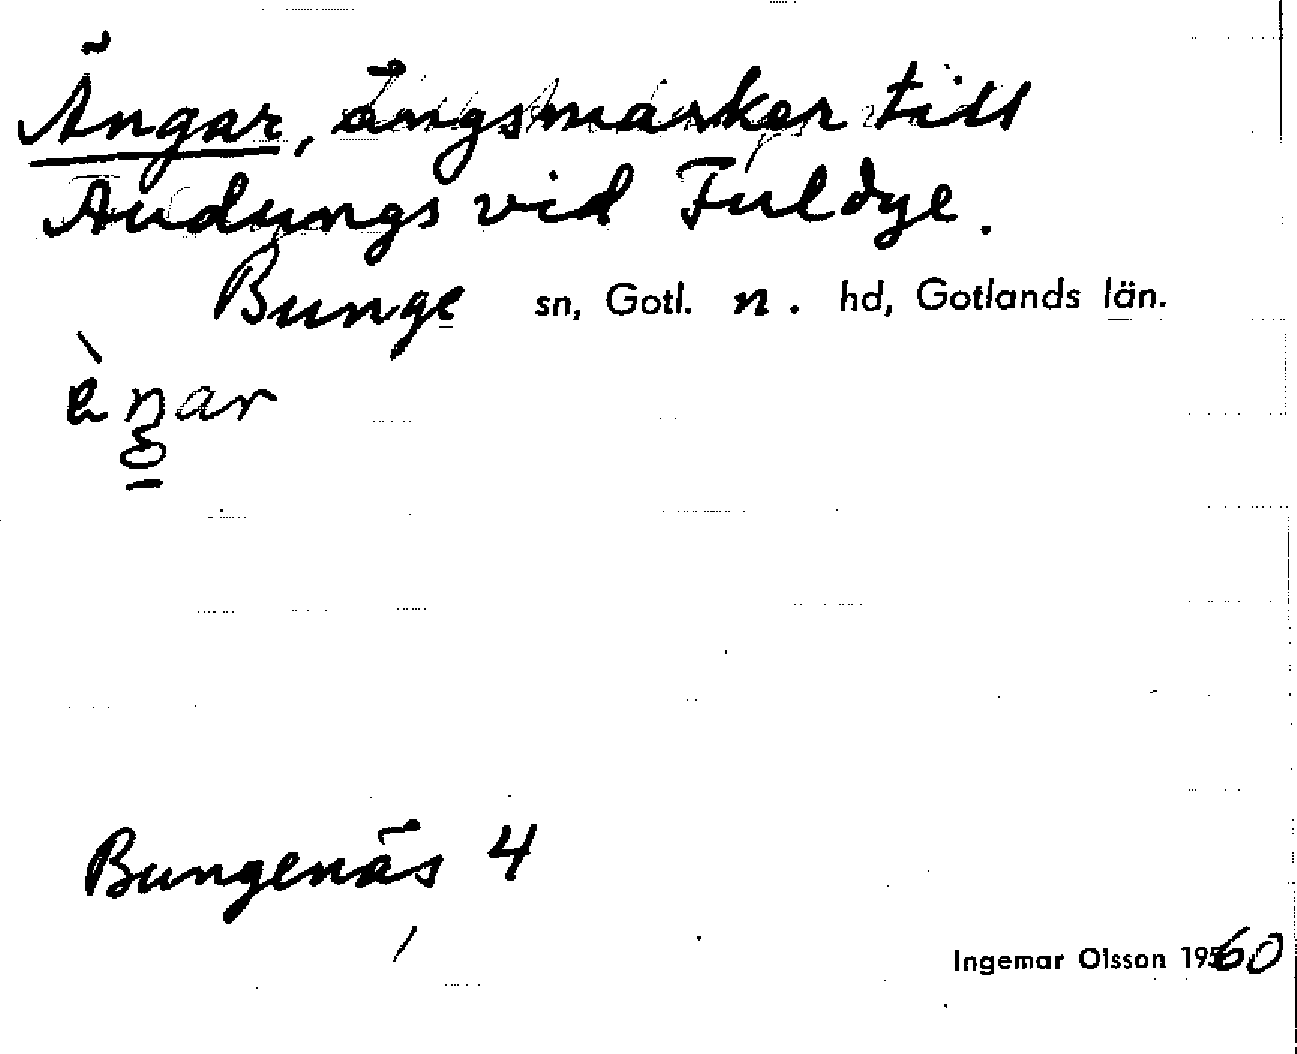 Ängar, ängsmarker till
Audungs vid Fuldye.
Bunge sn, Gotl. n. hd, Gotlands län.
Bungenäs 4
Ingemar Olsson 1960